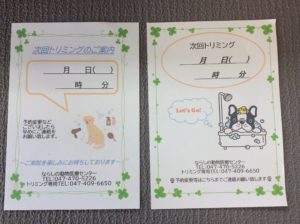 次回トリミングのご案内
月 日( )
時 分
予約変更など
ございましたら
早めにご連絡を
お願い致します。
~ご来院を楽しみにお待ちしております~
ならしの動物医療センター
TEL:047-470-5226
トリミング専用TEL:047-409-6650
次回トリミング
月 日( )
時 分
Let's Go!
ならしの動物医療センター
TEL:047-470-5226
トリミング専用TEL:047-409-6650
予約変更等はこちらまでご連絡お願い致します